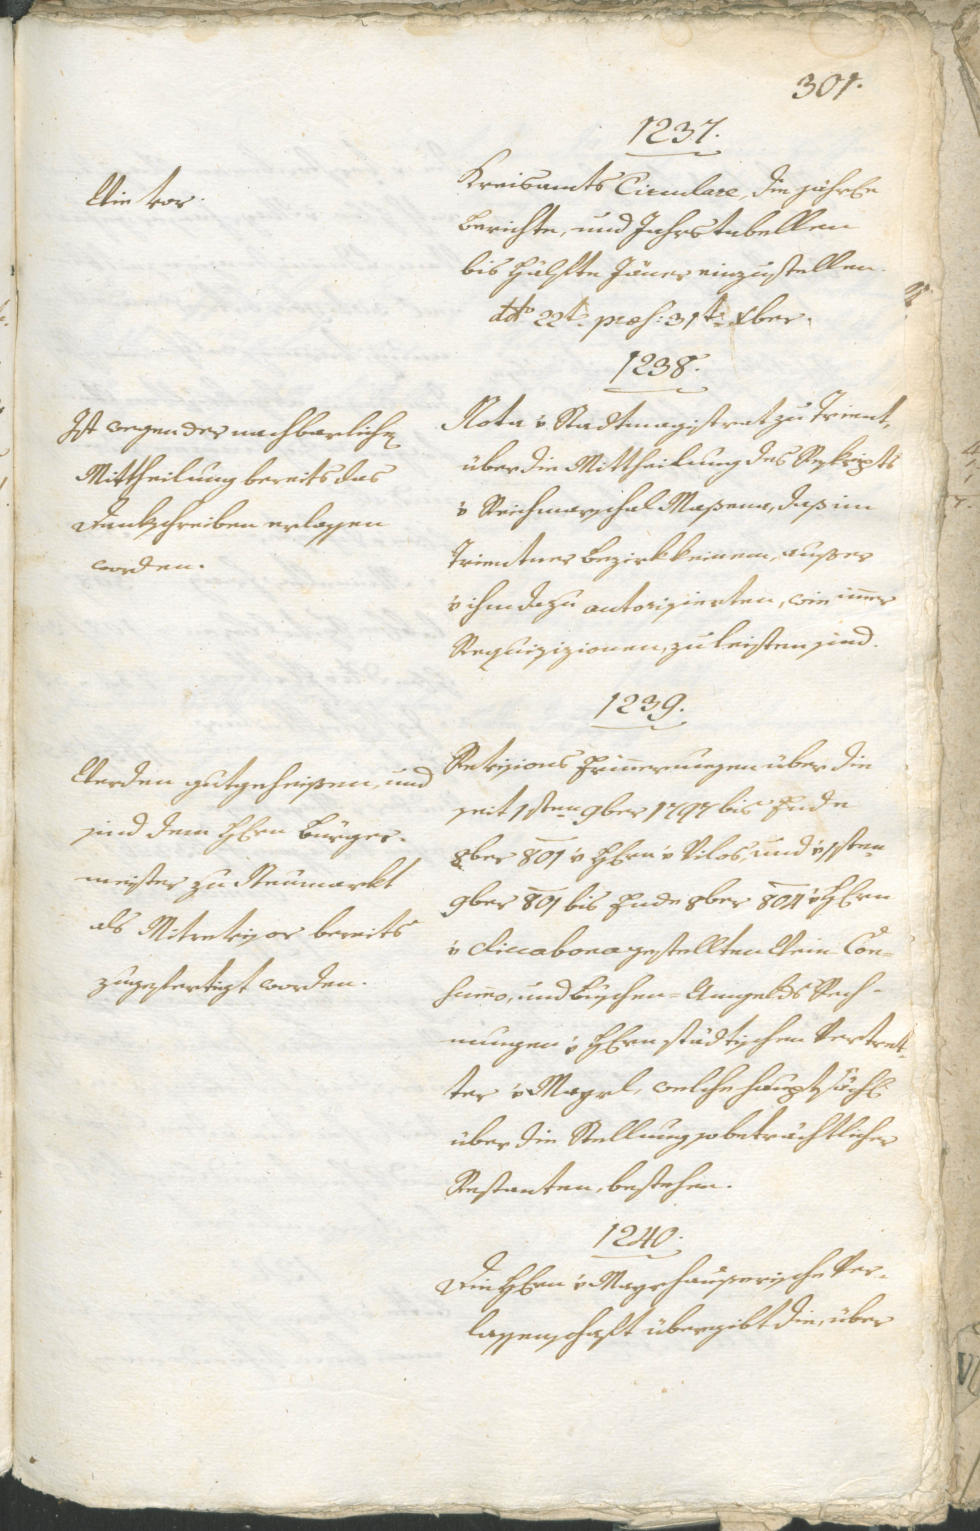 301.
1237.
Wie vor.
Kreisamts Circulare, die jährln
Berichte, und Jahrstabellen
bis Hälfte Jäner einzustellen.
ddto 22t. præs: 31t. Xber.
1238.
Ist wegen der nachbarlichn
Mittheilung bereits das
Dankschreiben erlassen
worden.
Nota v Stadtmagistrat zu Trient,
über die Mittheilung des Reskripts
v Reichmarschal Massena, daß im
Trientner Bezirk keinem, außer
v ihm dazu autorisierten, wie immer
Requisizionen, zu leisten sind.
1239.
Werden gutgeheißen, und
sind dem Hern Bürger-
meister zu Neumarkt
als Mitrevisor bereits
zugefertigt worden.
Revisions Erinnerungen über die
seit 1sten 9ber 1797 bis Ende
8ber 801 v Hern v Vilos, und v 1sten
9ber 801 bis Ende 8ber 804 v Hern
v Ciccabona gestellten Wein Con-
sumo, und Fischen-Umgelds Rech-
nungen v Hern städtischen Vertret-
ter v Mayrl, welche hauptsächl
über die Stellung so beträchtlicher
Restanten, bestehen.
1240.
Die Hern v Mayrhauserische Ver-
lassenschaft übergibt die, über